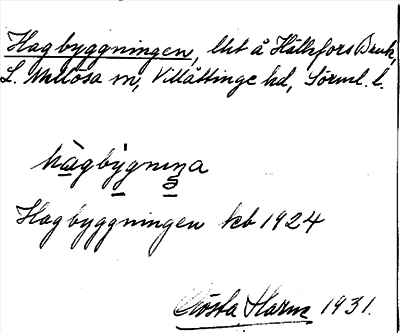 Hagbyggningen, lht å Hällefors Bruk,
L. Mellösa sn, Villåttinge hd, Sörml. l.
hàgby̆gnıṇa
Hagbyggningen kb 1924
Gösta Harns 1931.